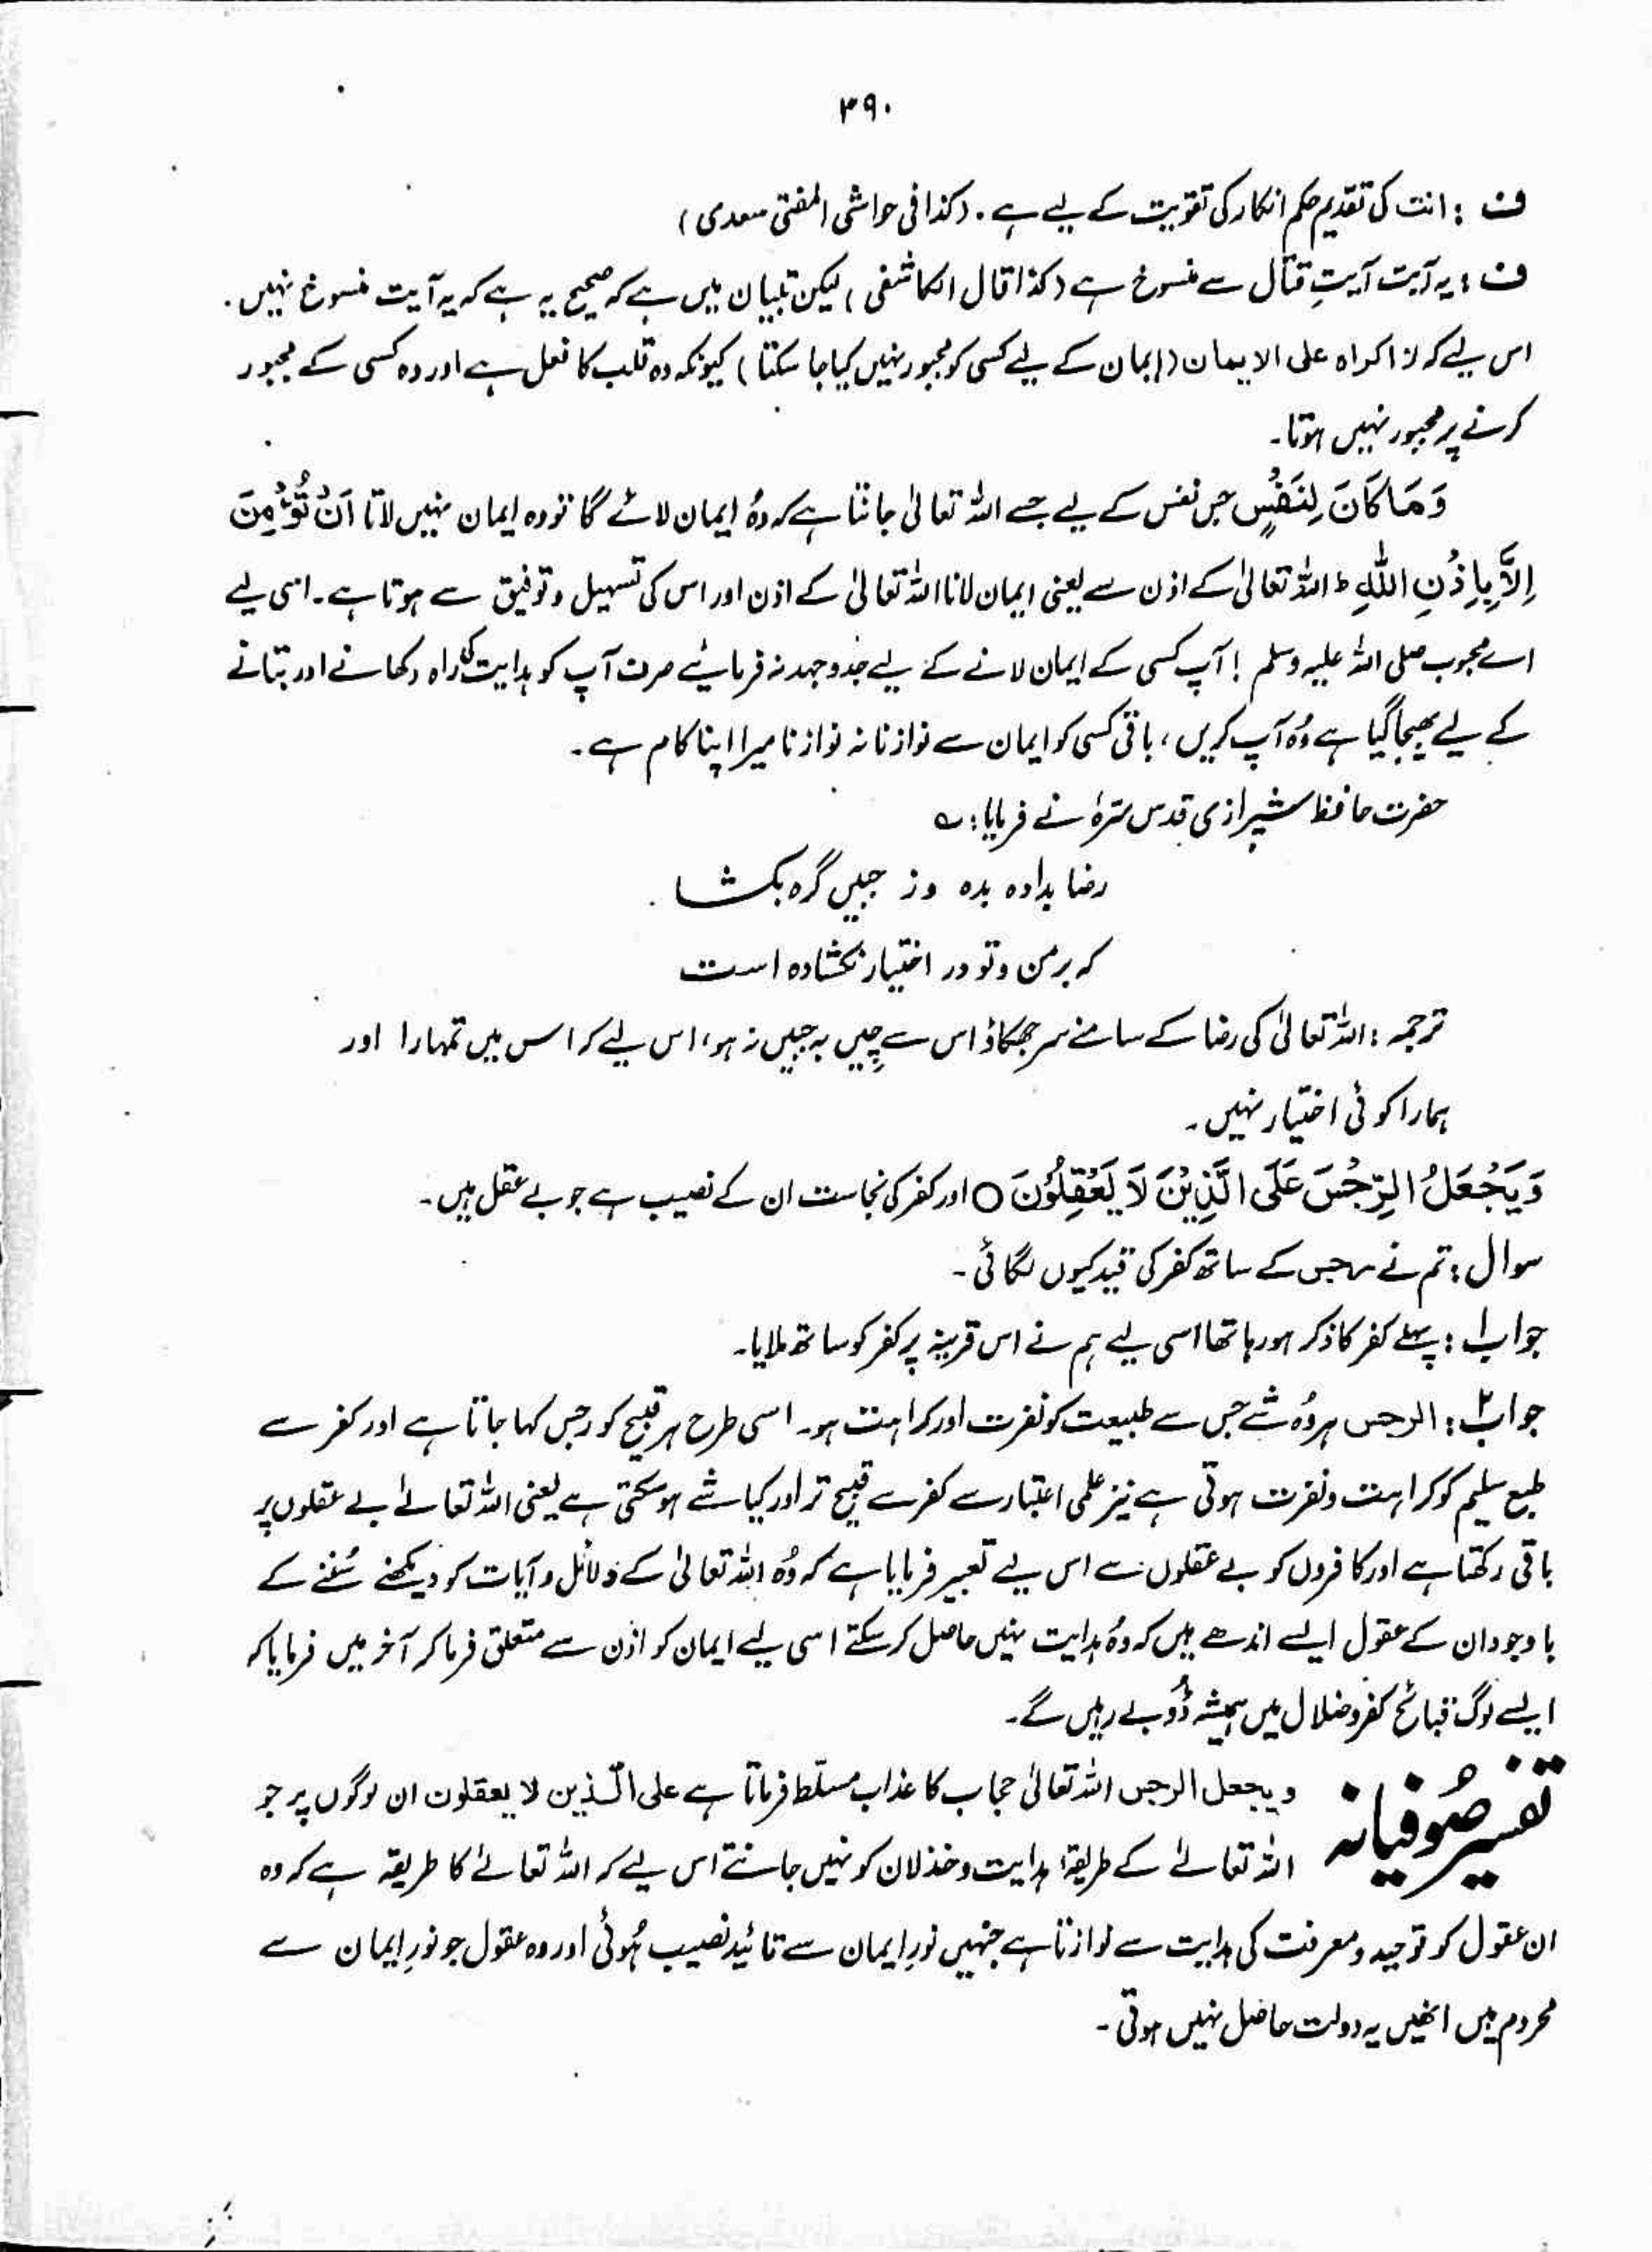 ۳۹۰
ف : انت کی تقدیم حکم انکار کی تقویت کے لیے ہے ۔ (کذا فی حواشی المفتی سعدی)
ف : یہ آیت آیتِ قتال سے منسوخ ہے (کذا قال الکاشفی) لیکن تبیان میں ہے کہ صحیح یہ ہے کہ یہ آیت منسوخ نہیں ۔
اس لیے کہ لا اکراہ علی الایمان (ایمان کے لیے کسی کو مجبور نہیں کیا جا سکتا) کیونکہ وہ قلب کا فعل ہے اور وہ کسی کے مجبور
کرنے پر مجبور نہیں ہوتا ۔
وَمَا کَانَ لِنَفْسٍ جس نفس کے لیے جسے اللہ تعالیٰ جانتا ہے کہ وُہ ایمان لائے گا تو وہ ایمان نہیں لاتا اَنْ تُؤْمِنَ
اِلَّا بِاِذْنِ اللّٰہِ ط اللہ تعالیٰ کے اذن سے یعنی ایمان لانا اللہ تعالیٰ کے اذن اور اس کی تسہیل و توفیق سے ہوتا ہے ۔ اسی لیے
اے محبوب صلی اللہ علیہ وسلم ! آپ کسی کے ایمان لانے کے لیے جدوجہد نہ فرمائیے صرف آپ کو ہدایت کی راہ دکھانے اور بتانے
کے لیے بھیجا گیا ہے وُہ آپ کریں ، باقی کسی کو ایمان سے نوازنا نہ نوازنا میرا اپنا کام ہے ۔
حضرت حافظ شیرازی قدس سرّہٗ نے فرمایا : ؎
رضا بدادہ بدہ وز جبیں گرہ بکشا
کہ برمن و تو در اختیار نکشادہ است
ترجمہ : اللہ تعالیٰ کی رضا کے سامنے سر جھکاؤ اس سے چیں بہ جبیں نہ ہو ، اس لیے کہ اس میں تمہارا اور
ہمارا کوئی اختیار نہیں ۔
وَیَجْعَلُ الرِّجْسَ عَلَی الَّذِیْنَ لَا یَعْقِلُوْنَ ○ اور کفر کی نجاست ان کے نصیب ہے جو بے عقل ہیں ۔
سوال : تم نے رجس کے ساتھ کفر کی قید کیوں لگائی ۔
جواب۱ : پہلے کفر کا ذکر ہو رہا تھا اسی لیے ہم نے اس قرینہ پر کفر کو ساتھ ملایا ۔
جواب۲ : الرجس ہر وُہ شے جس سے طبیعت کو نفرت اور کراہت ہو ۔ اسی طرح ہر قبیح کو رجس کہا جاتا ہے اور کفر سے
طبع سلیم کو کراہت و نفرت ہوتی ہے نیز علمی اعتبار سے کفر سے قبیح تر اور کیا شے ہو سکتی ہے یعنی اللہ تعالےٰ بے عقلوں پر
باقی رکھتا ہے اور کافروں کو بے عقلوں سے اس لیے تعبیر فرمایا ہے کہ وُہ اللہ تعالیٰ کے دلائل و آیات کو دیکھنے سُننے کے
باوجود ان کے عقول ایسے اندھے ہیں کہ وُہ ہدایت نہیں حاصل کر سکتے اسی لیے ایمان کو اذن سے متعلق فرما کر آخر میں فرمایا کہ
ایسے لوگ قبائح کفر و ضلال میں ہمیشہ ڈُوبے رہیں گے ۔
تفسیر صُوفیانہ ویجعل الرجس اللہ تعالیٰ حجاب کا عذاب مسلّط فرماتا ہے علی الّذین لا یعقلون ان لوگوں پر جو
اللہ تعالےٰ کے طریقۂ ہدایت و خذلان کو نہیں جانتے اس لیے کہ اللہ تعالےٰ کا طریقہ ہے کہ وہ
ان عقول کو توحید و معرفت کی ہدایت سے نوازتا ہے جنہیں نورِ ایمان سے تائید نصیب ہُوئی اور وہ عقول جو نورِ ایمان سے
محروم ہیں انھیں یہ دولت حاصل نہیں ہوتی ۔